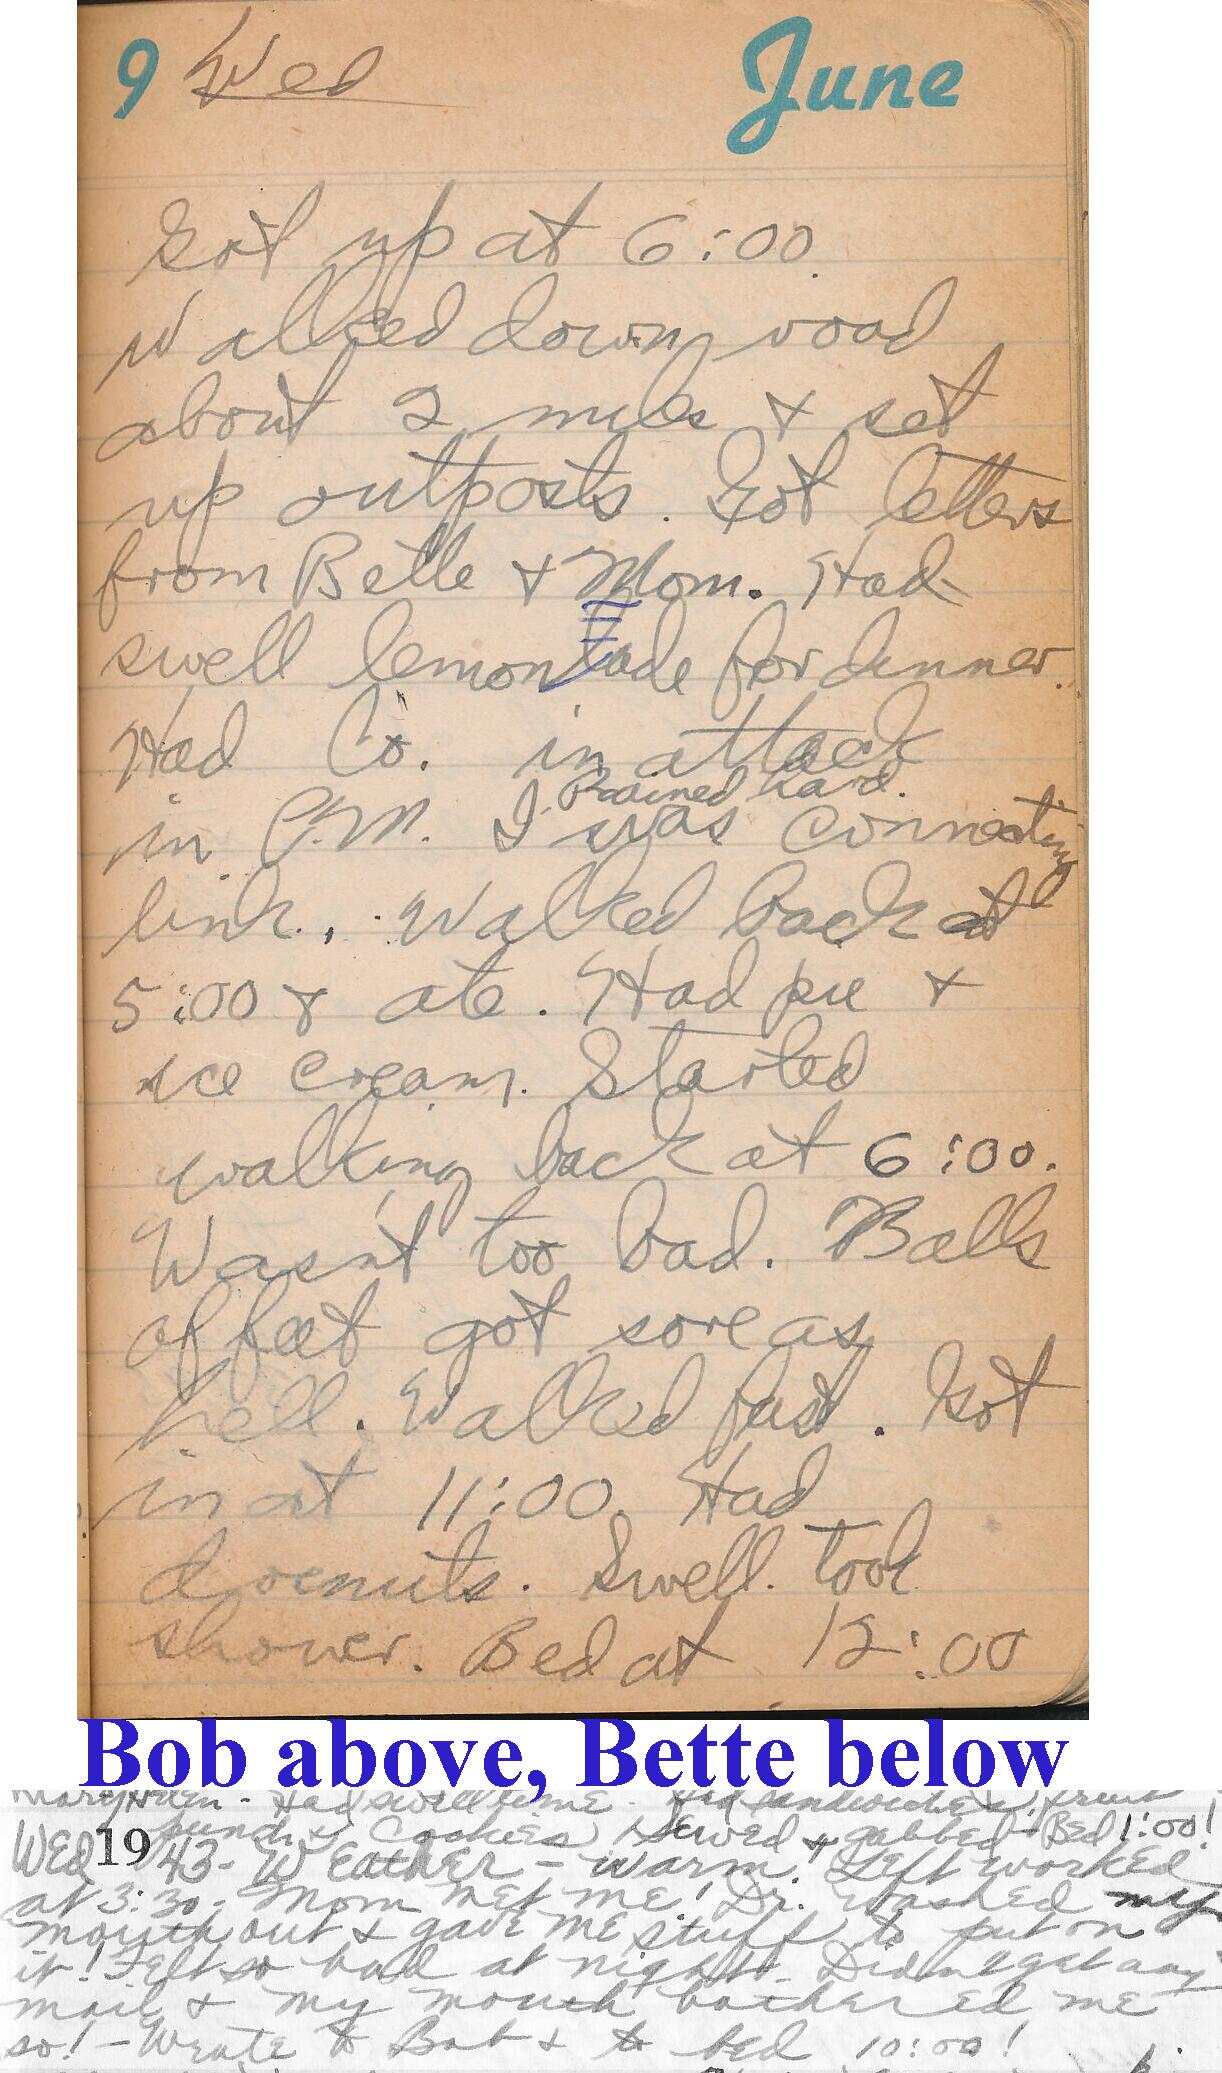 9 Wed June
Got up at 6:00.
Walked down road
about 2 miles & set
up outposts. Got letters
from Bette & Mom. Had
swell lemonade for dinner.
Had Co. in attack
Rained hard.
in P.M. I was connecting
link. Walked back at
5:00 & ate. Had pie &
ice cream. Started
walking back at 6:00.
Wasn't too bad. Balls
of feet got sore as
hell. Walked fast. Got
in at 11:00. Had
doenuts. Swell. Took
shower. Bed at 12:00
Bob above, Bette below
Had swell time - Had sandwiches, fruit
punch & Cookies Sewed & gabbed - Bed 1:00!
WED 19 43 - WEATHER - warm! Left worked
at 3:30 - Mom MET ME! Dr. washed my
mouth out & gave ME stuff to put on
it! Felt so bad at night - Didn't get any
mail & my mouth bothered me
so! - Wrote to Bob & to bed 10:00!